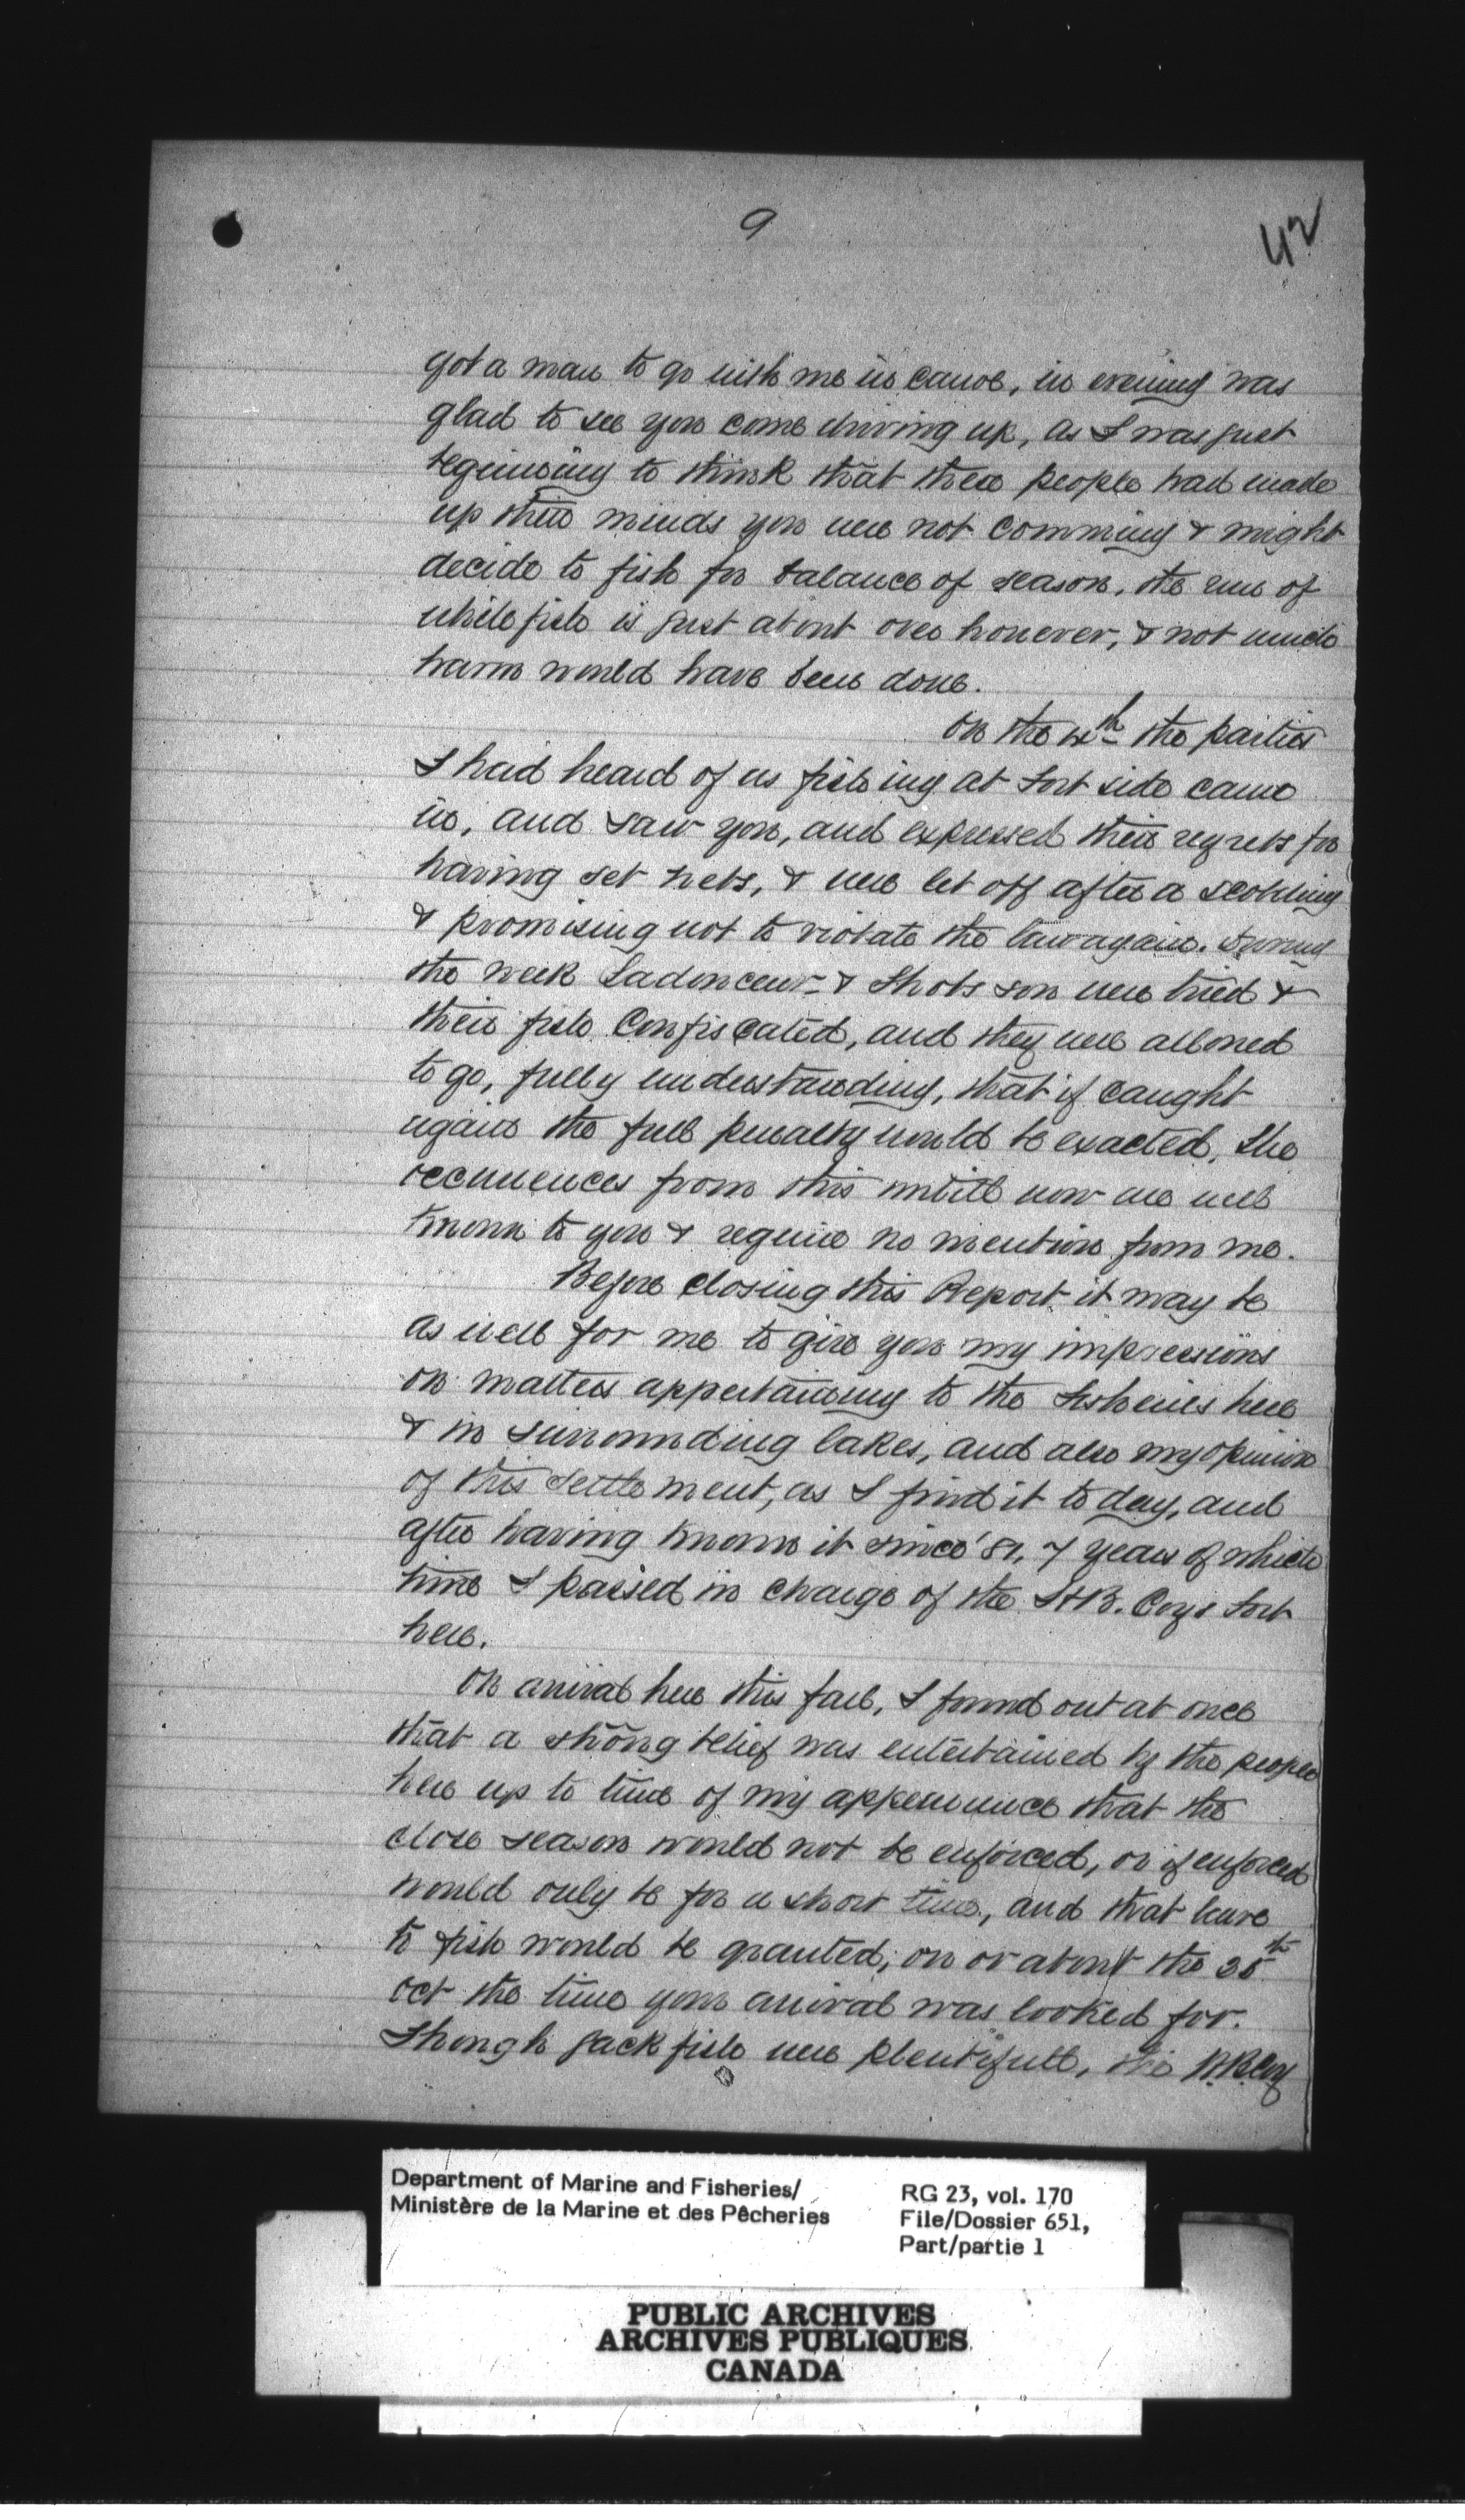 9
42
got a man to go with me in canoe, in evening was
glad to see you come driving up, as I was just
beginning to think that these people had made
up their minds you were not comming & might
decide to fish for balance of season, the run of
whitefish is just about over however, & not much
harm would have been done.
On the 4th the parties
I had heard of as fishing at Fort side came
in, and saw you, and expressed their regrets for
having set nets, & were let off after a scolding
& promising not to violate the law again. During
the week Ladouceur & Shots son were tried &
their fish Confiscated, and they were allowed
to go, fully understanding, that if caught
again the full penalty would be exacted. The
occurences from this untill now are well
known to you & require no mention from me.
Before closing this Report it may be
as well for me to give you my impressions
on matters appertaining to the Fisheries here
& in surrounding lakes, and also my opinion
of this Settlement, as I find it to day, and
after having known it since '81, 7 years of which
time I passed in charge of the H.B. Coys Fort
here.
On arrival here this fall, I found out at once
that a strong belief was entertained by the people
here up to time of my appearance that the
close season would not be enforced, or if enforced
would only be for a short time, and that leave
to fish would be granted, on or about the 25th
Oct the time your arrival was looked for.
Though jack fish were plentifull, the H.B.Coy
Department of Marine and Fisheries/
Ministère de la Marine et des Pêcheries
RG 23, vol. 170
File/Dossier 651,
Part/partie 1
PUBLIC ARCHIVES
ARCHIVES PUBLIQUES
CANADA